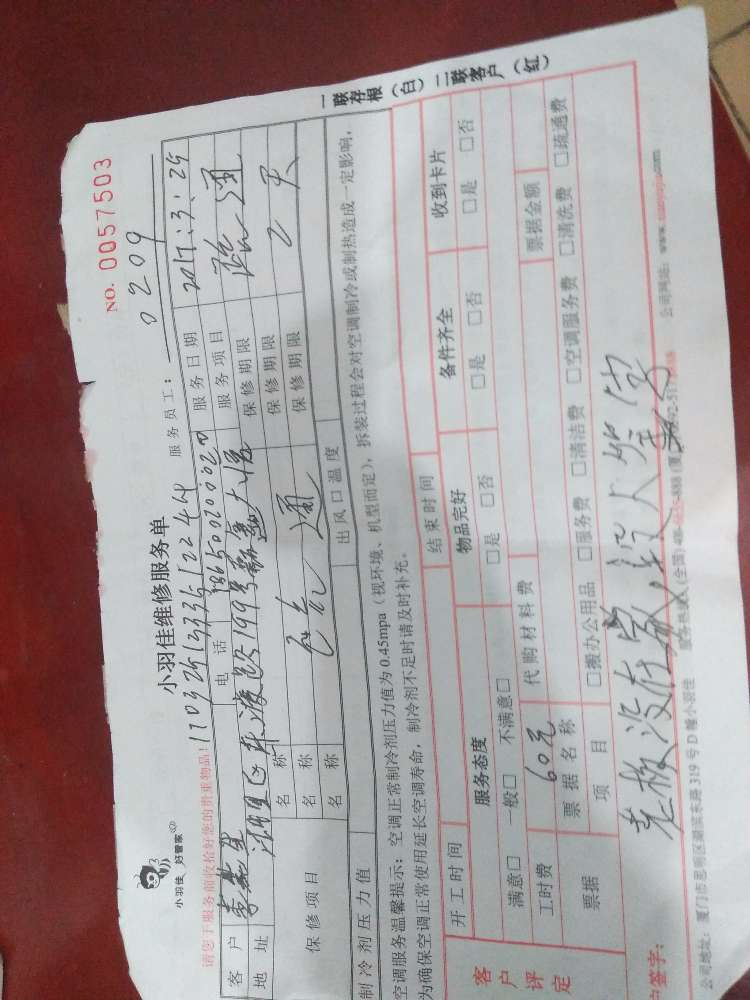 一联存根（白）二联客户（红）
NO. 0057503
小羽佳 好管家
小羽佳维修服务单
服务员工： 0209
请您于服务前收拾好您的贵重物品！
客户
电话
服务日期 2017:3:25
地址 湖里区
199号
服务项目 疏通
保修项目
名称
保修期限
名称
通
保修期限 2天
名称
保修期限
制冷剂压力值
出风口温度
空调服务温馨提示：空调正常制冷剂压力值为 0.45mpa（视环境、机型而定），拆装过程会对空调制冷或制热造成一定影响，
为确保空调正常使用延长空调寿命，制冷剂不足时请及时补充。
客户评定
开工时间
结束时间
服务态度
物品完好
备件齐全
收到卡片
满意□ 一般□ 不满意□
□是 □否
□是 □否
□是 □否
工时费 60元
代购材料费
票据
票据名称
票据金额
项目
□搬办公用品 □服务费 □清洁费 □空调服务费 □清洗费 □疏通费
户签字： 老板没在家,没人签字
公司地址：厦门市思明区湖滨东路 319 号 D 幢小羽佳
公司网站：